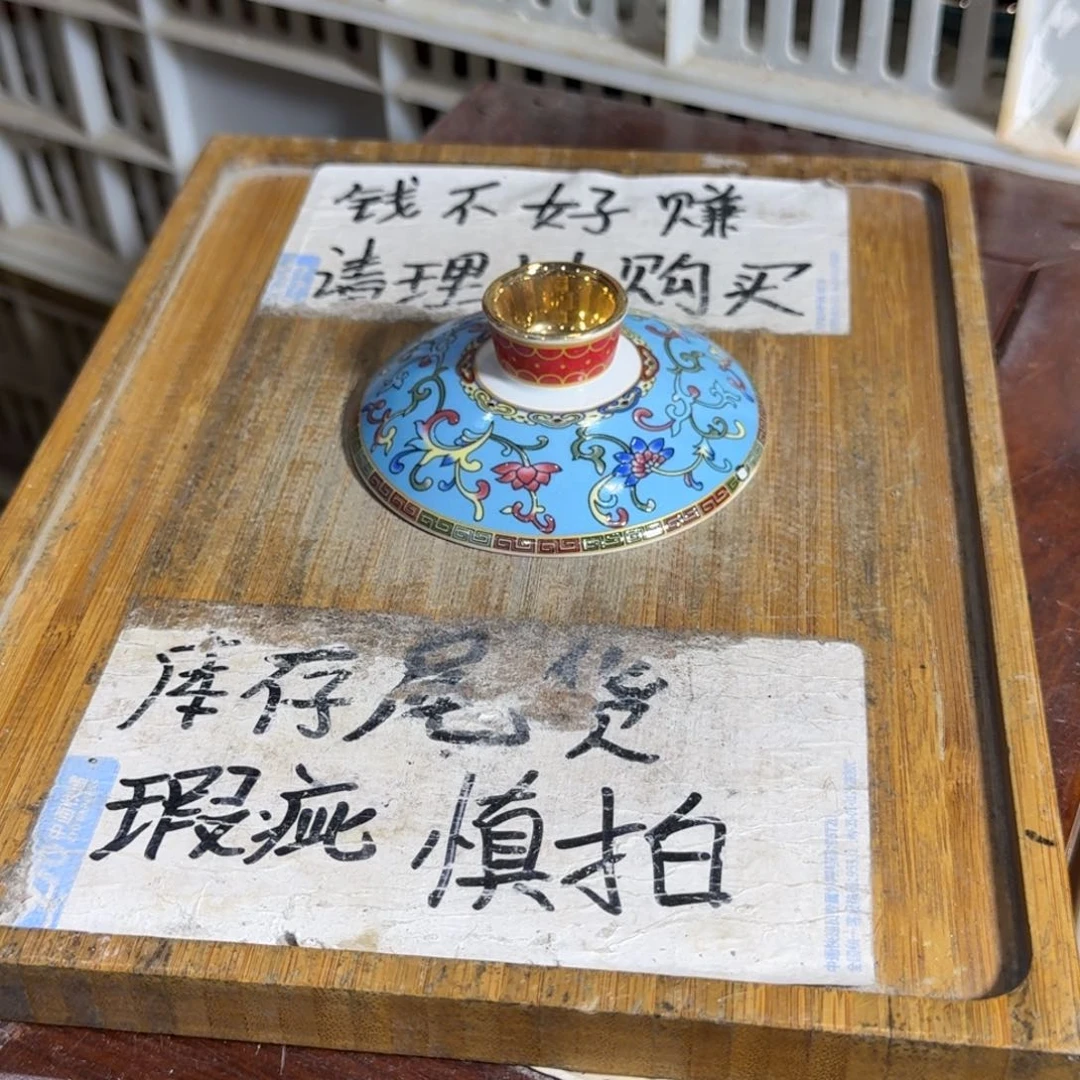 钱不好赚
请理 购买
库存尾货
瑕疵 慎拍